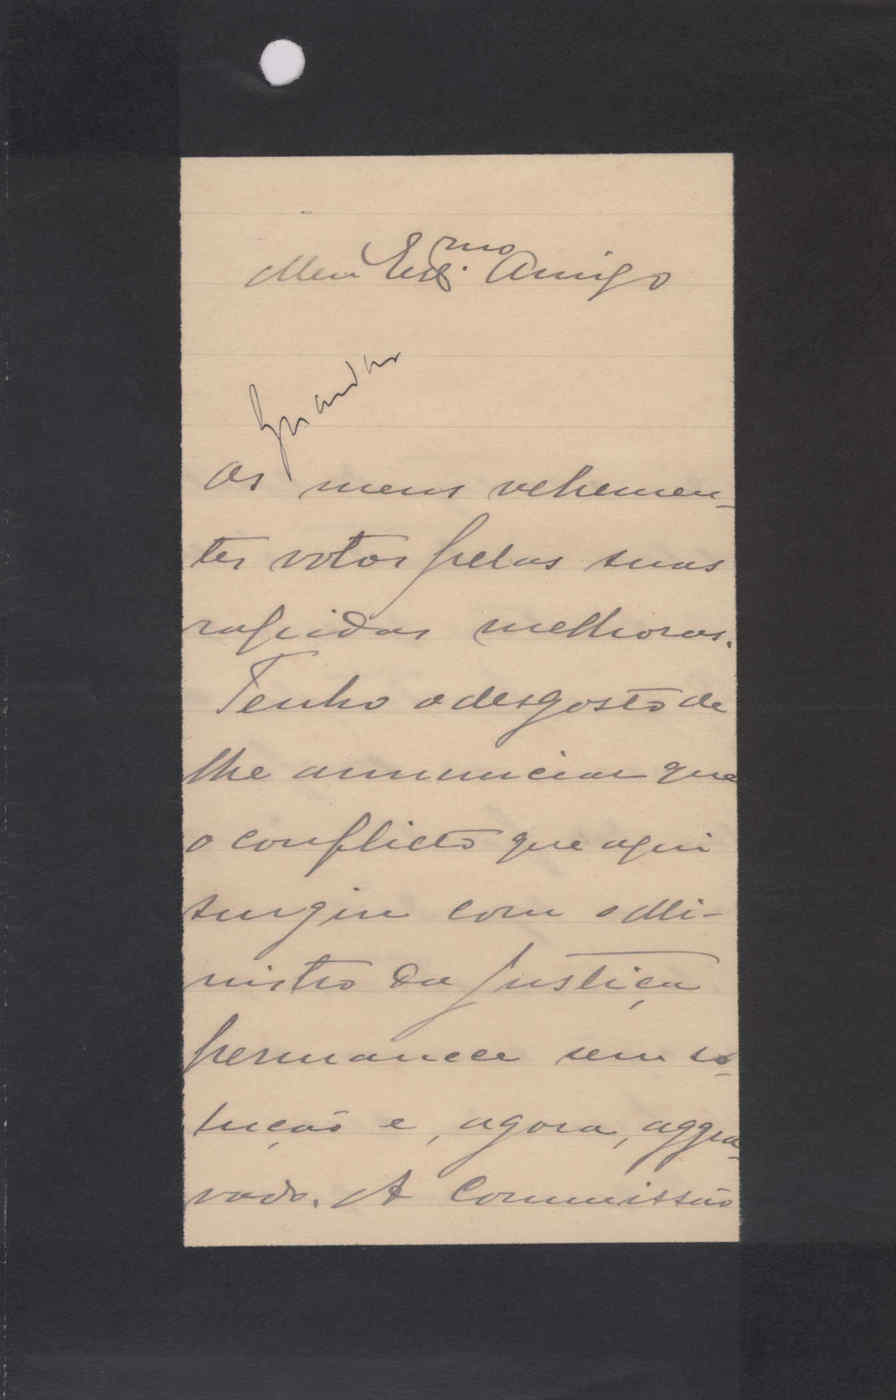 Meu Ex.mo Amigo
Guardar
Os meus vehemen-
tes votos pelas suas
rapidas melhoras.
Tenho o desgosto de
lhe annunciar que
o conflicto que aqui
surgiu com o Mi-
nistro da Justiça
permanece sem so-
lução e, agora, aggra-
vado. A Commissão